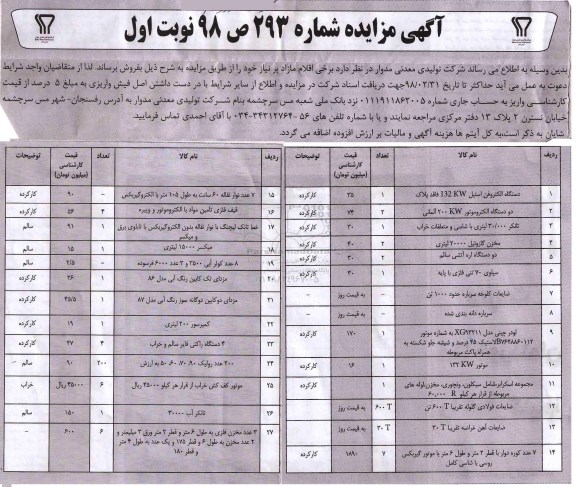 آگهی مزایده شماره ۲۹۳ ص ۹۸ نوبت اول
بدین وسیله به اطلاع می رساند شرکت تولیدی معدنی مدوار در نظر دارد برخی اقلام مازاد بر نیاز خود را از طریق مزایده به شرح ذیل بفروش برساند. لذا از متقاضیان واجد شرایط
دعوت به عمل می آید حداکثر تا تاریخ ۹۸/۰۲/۳۱ جهت دریافت اسناد شرکت در مزایده و اطلاع از سایر شرایط با در دست داشتن اصل فیش واریزی به مبلغ ۵ درصد از قیمت
کارشناسی واریز به حساب جاری شماره ۰۱۱۱۹۱۱۸۶۲۰۰۵ نزد بانک ملی شعبه مس سرچشمه بنام شرکت تولیدی معدنی مدوار به آدرس رفسنجان- شهر مس سرچشمه
خیابان نسترن ۲ پلاک ۱۳ دفتر مرکزی مراجعه نمایند و یا با شماره تلفن های ۵۶ -۰۳۴-۳۴۳۱۲۷۶۴ با آقای احمدی تماس فرمایید.
شایان به ذکر است،به کل آیتم ها هزینه آگهی و مالیات بر ارزش افزوده اضافه می گردد.
ردیف نام کالا تعداد قیمت کارشناسی (میلیون تومان) توضیحات
۱ دستگاه الکتروفن استیل 132 KW فاقد پلاک ۱ ۳۵ کارکرده
۲ دو دستگاه الکتروموتور 200 KW آلمانی ۲ ۷۴ کارکرده
۳ تانکر ۳۰/۰۰۰ لیتری با شاسی و متعلقات خراب ۱ ۳۰ کارکرده
۴ مخزن گازوئیل ۲۰۰۰۰ لیتری ۲ ۴۰ کارکرده
۵ دو دستگاه اره آتشی سالم ۲ ۳۰ کارکرده
۶ سیلوی ۲۰ تنی فلزی با پایه ۱ ۳۰ کارکرده
۷ ضایعات کلوخه سرباره حدود ۱۰۰۰ تن – به قیمت روز –
۸ سرباره دانه بندی شده – به قیمت روز
۹ لودر چینی مدل XG932II به شماره موتور
لاستیک ۴۵ درصد و شیشه جلو شکسته به
همراه باکت مربوطه ۱ ۱۷۰ کارکرده
۱۰ موتور ۱۳۲ KW ۱ ۱۶ کارکرده
۱۱ مجموعه اسکرابر،شامل سیکلون، ونچوری، مخزن،لوله های
مربوطه از قرار هر کیلو R ۶۰,۰۰۰ ۱ کارکرده
۱۲ ضایعات فولادی گلوله تقریبا ۶۰۰ T تن ۶۰۰ T به قیمت روز
۱۳ ضایعات آهن خراصه تقریبا ۳۰ T ۳۰ T به قیمت روز
۱۴ ۷ عدد کوره دوار با قطر ۲ متر و طول ۶ متر با موتور گیربکس
روسی با شاسی کامل ۷ ۱۸۹۰ کارکرده
ردیف نام کالا تعداد قیمت کارشناسی (میلیون تومان) توضیحات
۱۵ ۷ عدد نوار نقاله ۶۰ سانت به طول ۱۰۵ متر با الکتروگیربکس – ۹۰ کارکرده
۱۶ قیف فلزی تأمین مواد با الکتروموتور و ویبره ۴ ۵۶ کارکرده
۱۷ تانک لیچینگ با نوار نقاله بدون الکتروگیربکس با تابلوی برق
و میکسر ۱ ۹۱ سالم
۱۸ میکسر ۱۵۰۰۰ لیتری ۱ ۱۵ سالم
۱۹ ۸ عدد کولر آبی ۳۵۰۰ و ۳ عدد ۶۰۰۰ فرسوده – ۲/۵ سالم
۲۰ مزدای تک کابین رنگ آبی مدل ۸۶ ۱ ۲۶ کارکرده
۲۱ مزدای دوکابین دوگانه سوز رنگ آبی مدل ۸۷ ۱ ۳۵/۵ کارکرده
۲۲ کمپرسور ۲۰۰ لیتری ۱ ۱۹ کارکرده
۲۳ ۴ دستگاه راکش فایر سالم و خراب ۴ ۲۷ کارکرده
۲۴ ۲۰۰ عدد رولیک ۹۰، ۷۰، ۶۰، ۵۰ به ارزش ۲۰۰ ۹۰ سالم
۲۵ موتور کف کش خراب از قرار هر کیلو ۲۵۰۰۰ ریال ۶ ۲۵۰۰۰ ریال خراب
۲۶ تانکر آب ۳۰۰۰۰ ۱ ۱۵۰ سالم
۲۷ ۳ عدد مخزن فلزی به طول ۶ متر و قطر ۲ متر ورق ۳ میلیمتر و
۲ عدد مخزن به طول ۶ و قطر ۱۷۵ و یک عدد به طول ۴ متر
و قطر ۱۸۰ ۶ ۶۰۰ –